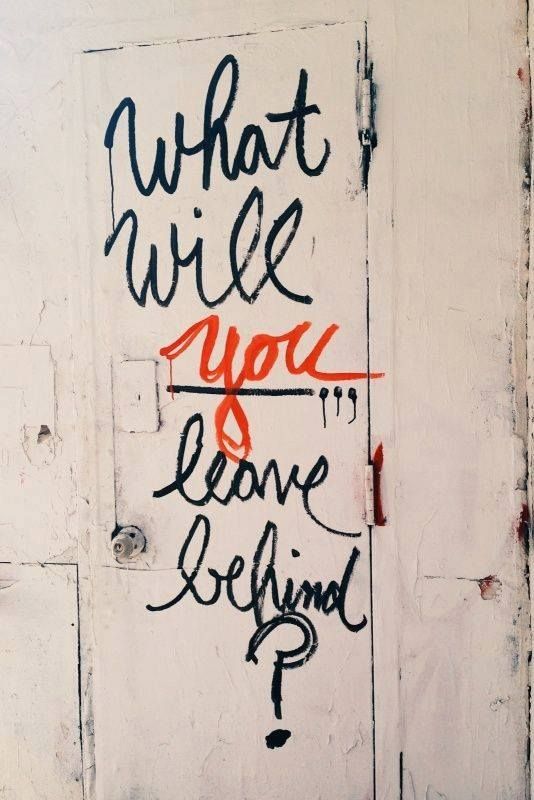 What
Will
you
leave
behind
?